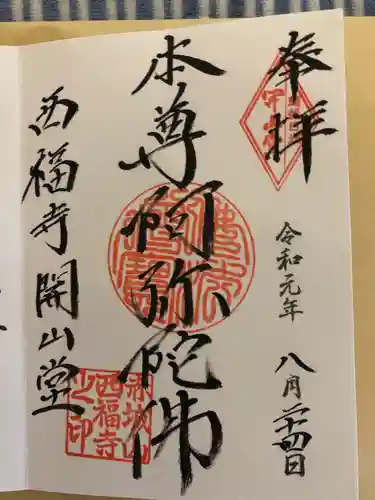 奉拝
令和元年 八月廿四日
本尊阿弥陀佛
西福寺開山堂
赤城山
西福寺
之印